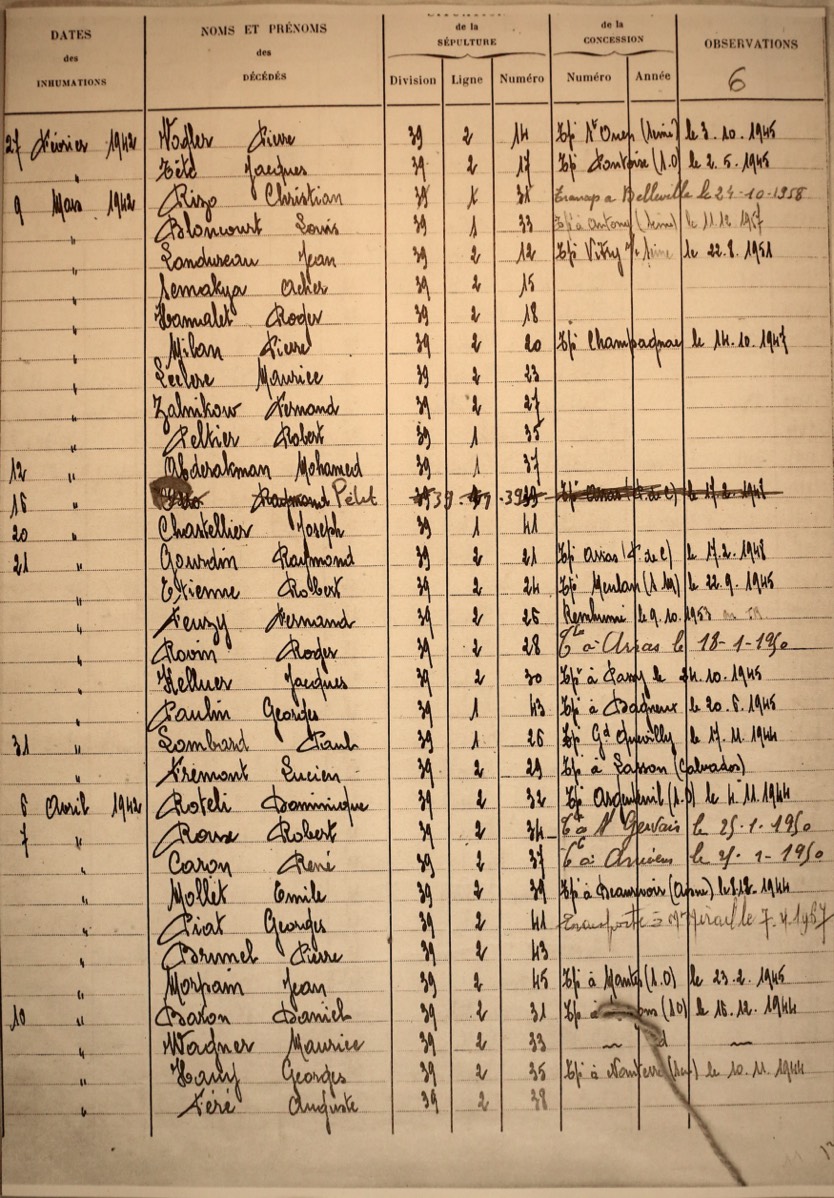 DATES des INHUMATIONS
NOMS ET PRÉNOMS des DÉCÉDÉS
de la SÉPULTURE
Division Ligne Numéro
de la CONCESSION
Numéro Année
OBSERVATIONS
6
27 Février 1942 Wodler Pierre 39 2 14 Tpé St Ouen (Seine) le 3.10.1945
" Têtd Jacques 39 2 17 Tpé Pontoise (S.O) le 2.5.1945
9 Mars 1942 Rizo Christian 39 1 31 Transp a Belleville le 24-10-1958
" Bloncourt Louis 39 1 33 Tpé à Antony (Seine) le 11.12.1957
" Landureau Jean 39 2 12 Tpé Vitry s/ Seine le 22.8.1951
" Semakya Acher 39 2 15
" Hamalet Roger 39 2 18
" Milan Pierre 39 2 20 Tpé Champagnac le 14.10.1947
" Leclerc Maurice 39 2 23
" Zalnikow Fernand 39 2 27
" Peltier Robert 39 1 35
12 " Abderakman Mohamed 39 1 37
16 " Raymond Pétet 39 39 Tpé Arras (P. de C) le 17.2.1948
20 " Chastellier Joseph 39 1 41
21 " Gourdin Raymond 39 2 21 Tpé Arras (P. de C) le 17.2.1948
" Etienne Robert 39 2 24 Tpé Meulan le 22.9.1945
" Feuzy Fernand 39 2 26 Reinhumé le 9.10.1953
" Rovin Roger 39 2 28 à Arras le 18-1-1950
" Helluer Jacques 39 2 30 Tpé à Passy le 24.10.1945
" Paulin Georges 39 1 43 Tpé à Bagneux le 20.6.1945
31 " Lombard Paul 39 1 26 Tpé Gd Quevilly le 17.11.1944
" Frémont Lucien 39 2 29 Tpé à Lasson (Calvados)
6 Avril 1942 Roteli Dominique 39 2 32 Tpé Argenteuil (S.O) le 4.11.1944
7 " Roux Robert 39 2 34 à St Gervais le 25-1-1950
" Caron René 39 2 37 à Amiens le 25-1-1950
" Mollet Emile 39 2 39 Tpé à Beaurevoir (Aisne) le 8.12.1944
" Piat Georges 39 2 41 Transporté à le 7.4.1967
" Brunel Pierre 39 2 43
" Morpain Jean 39 2 45 Tpé à Mantes (S.O) le 23.2.1945
10 " Baron Daniel 39 2 31 Tpé à (S.O) le 16.12.1944
" Wagner Maurice 39 2 33 – d° –
" Hauy Georges 39 2 35 Tpé à Nanterre le 10.11.1944
" Féré Auguste 39 2 38